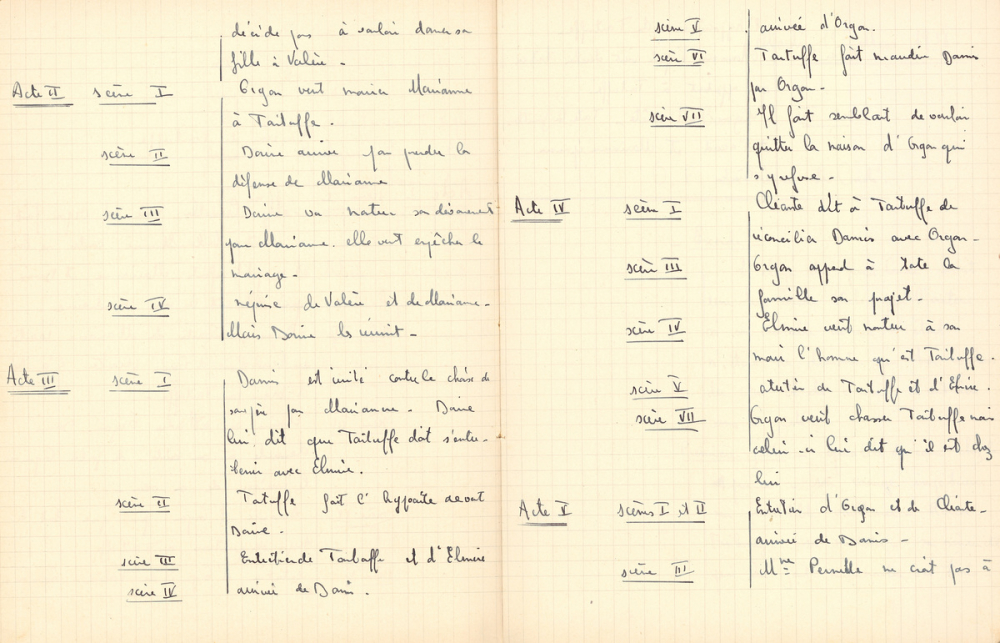 décide pas à vouloir donner sa
fille à Valère.
Acte II scène I Orgon veut marier Marianne
à Tartuffe.
scène II Dorine arrive pour prendre la
défense de Marianne
scène III Dorine va montrer son dévouement
pour Marianne. elle veut empêcher le
mariage -
scène IV méprise de Valère et de Marianne -
Mais Dorine les réunit -
Acte III scène I Damis est irrité contre le choix de
son père pour Marianne - Dorine
lui dit que Tartuffe doit s'entre-
tenir avec Elmire.
scène II Tartuffe fait l'hypocrite devant
Dorine.
scène III Entretien de Tartuffe et d'Elmire
scène IV arrivée de Damis.
scène V arrivée d'Orgon.
scène VI Tartuffe fait maudire Damis
par Orgon -
scène VII Il fait semblant de vouloir
quitter la maison d'Orgon qui
s'y refuse -
Acte IV scène I Cléante dit à Tartuffe de
réconcilier Damis avec Orgon -
scène III Orgon apprend à toute la
famille son projet -
scène IV Elmire veut montrer à son
mari l'homme qu'est Tartuffe.
scène V entretien de Tartuffe et d'Elmire.
scène VII Orgon veut chasser Tartuffe mais
celui-ci lui dit qu'il est chez
lui
Acte V scènes I et II Entretien d'Orgon et de Cléante -
arrivée de Damis -
scène III Mme Pernelle ne croit pas à